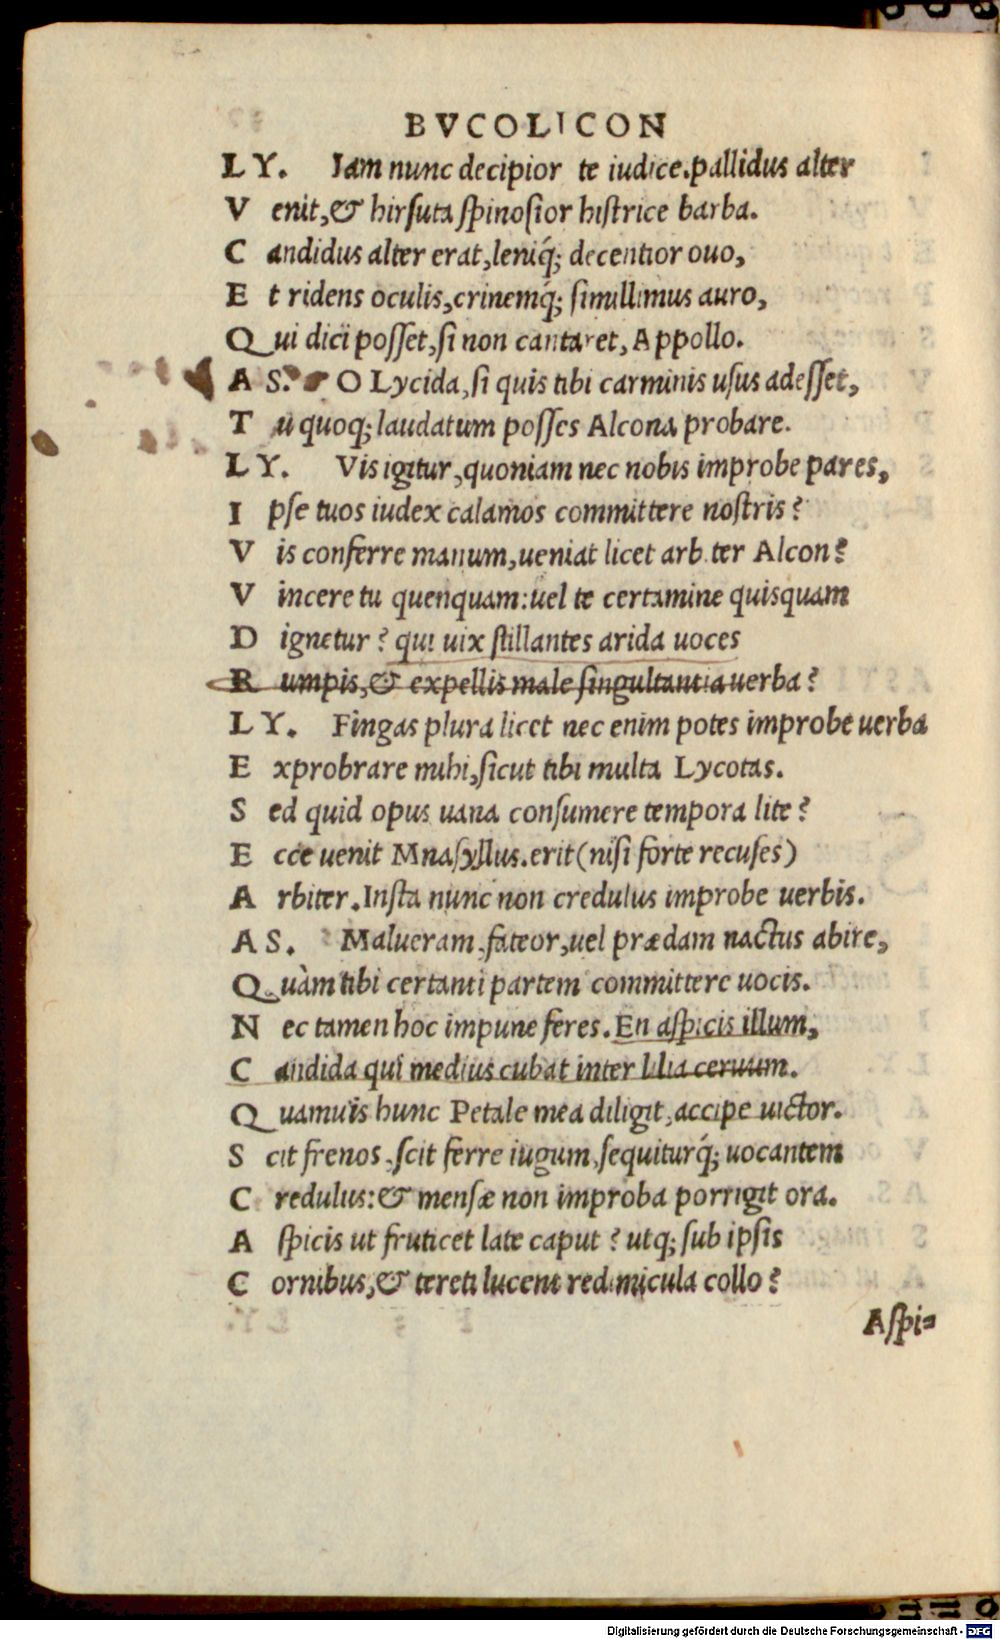 BVCOLICON
L Y. Iam nunc decipior te iudice.pallidus alter
V enit,& hirſuta ſpinoſior hiſtrice barba.
C andidus alter erat,leniq́; decentior ouo,
E t ridens oculis,crinemq́; ſimillimus auro,
Q ui dici poſſet,ſi non cantaret, Appollo.
A S. O Lycida,ſi quis tibi carminis uſus adeſſet,
T u quoq; laudatum poſſes Alcona probare.
L Y. Vis igitur,quoniam nec nobis improbe pares,
I pſe tuos iudex calamos committere noſtris?
V is conferre manum,ueniat licet arbiter Alcon?
V incere tu quenquam:uel te certamine quisquam
D ignetur? qui uix ſtillantes arida uoces
R umpis,& expellis male ſingultantia uerba?
L Y. Fingas plura licet nec enim potes improbe uerba
E xprobrare mihi,ſicut tibi multa Lycotas.
S ed quid opus uana conſumere tempora lite?
E cce uenit Mnaſyllus.erit(niſi forte recuſes)
A rbiter.Inſta nunc non credulus improbe uerbis.
A S. Malueram,fateor,uel prædam nactus abire,
Q uàm tibi certanti partem committere uocis.
N ec tamen hoc impune feres. En aſpicis illum,
C andida qui medius cubat inter lilia ceruum.
Q uamuis hunc Petale mea diligit,accipe uictor.
S cit frenos,ſcit ferre iugum,ſequiturq́; uocantem
C redulus:& menſæ non improba porrigit ora.
A ſpicis ut fruticet late caput? utq; ſub ipſis
C ornibus,& tereti lucent redimicula collo?
Aſpi=
Digitalisierung gefördert durch die Deutsche Forschungsgemeinschaft - DFG